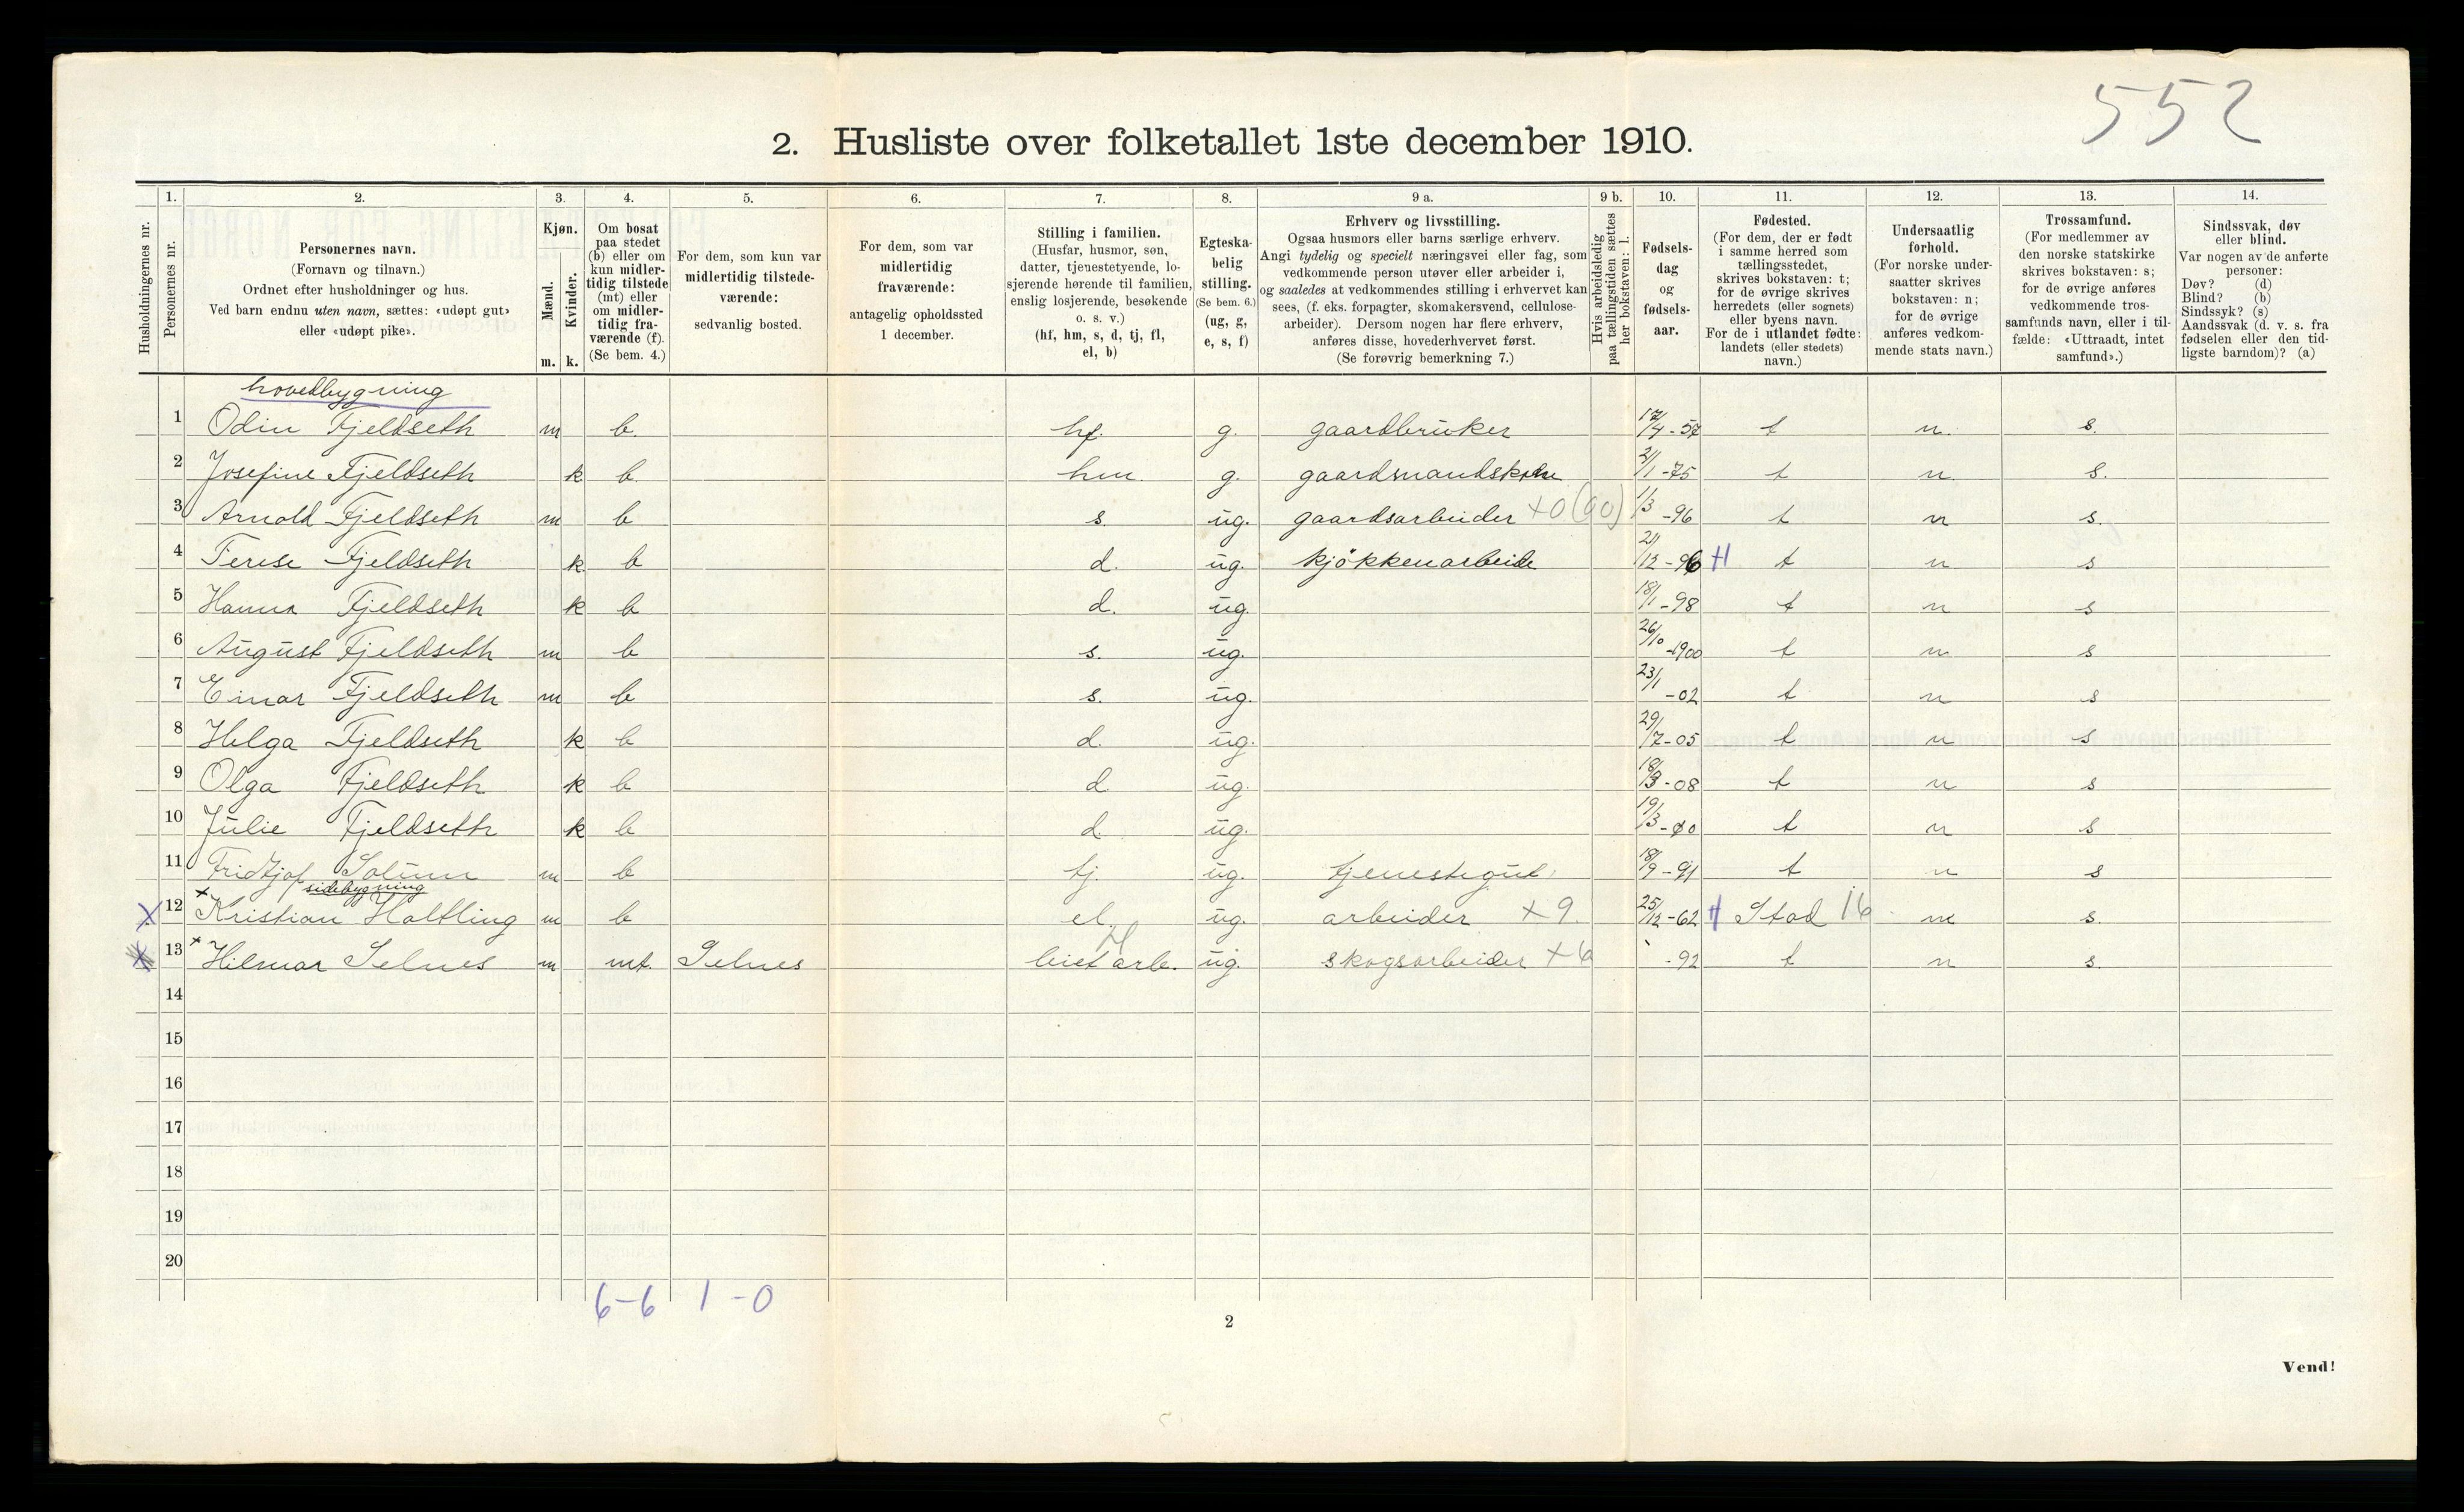 552
2. Husliste over folketallet 1ste december 1910.
Husholdningernes nr.
1.
Personernes nr.
2.
Personernes navn.
(Fornavn og tilnavn.)
Ordnet efter husholdninger og hus.
Ved barn endnu uten navn, sættes: «udøpt gut»
eller «udøpt pike».
3.
Kjøn.
Mænd.
Kvinder.
m. k.
4.
Om bosat
paa stedet
(b) eller om
kun midler-
tidig tilstede
(mt) eller
om midler-
tidig fra-
værende (f).
(Se bem. 4.)
5.
For dem, som kun var
midlertidig tilstede-
værende:
sedvanlig bosted.
6.
For dem, som var
midlertidig
fraværende:
antagelig opholdssted
1 december.
7.
Stilling i familien.
(Husfar, husmor, søn,
datter, tjenestetyende, lo-
sjerende hørende til familien,
enslig losjerende, besøkende
o. s. v.)
(hf, hm, s, d, tj, fl,
el, b)
8.
Egteska-
belig
stilling.
(Se bem. 6.)
(ug, g,
e, s, f)
9 a.
Erhverv og livsstilling.
Ogsaa husmors eller barns særlige erhverv.
Angi tydelig og specielt næringsvei eller fag, som
vedkommende person utøver eller arbeider i,
og saaledes at vedkommendes stilling i erhvervet kan
sees, (f. eks. forpagter, skomakersvend, cellulose-
arbeider). Dersom nogen har flere erhverv,
anføres disse, hovederhvervet først.
(Se forøvrig bemerkning 7.)
9 b.
Hvis arbeidsledig
paa tællingstiden sættes
her bokstaven: l.
10.
Fødsels-
dag
og
fødsels-
aar.
11.
Fødested.
(For dem, der er født
i samme herred som
tællingsstedet,
skrives bokstaven: t;
for de øvrige skrives
herredets (eller sognets)
eller byens navn.
For de i utlandet fødte:
landets (eller stedets)
navn.)
12.
Undersaatlig
forhold.
(For norske under-
saatter skrives
bokstaven: n;
for de øvrige
anføres vedkom-
mende stats navn.)
13.
Trossamfund.
(For medlemmer av
den norske statskirke
skrives bokstaven: s;
for de øvrige anføres
vedkommende tros-
samfunds navn, eller i til-
fælde: «Uttraadt, intet
samfund».)
14.
Sindssvak, døv
eller blind.
Var nogen av de anførte
personer:
Døv? (d)
Blind? (b)
Sindssyk? (s)
Aandssvak (d. v. s. fra
fødselen eller den tid-
ligste barndom)? (a)
hovedbygning
1 Odin Fjeldseth m b. hf. g. gaardbruker 17/4 - 57 t n. s.
2 Josefine Fjeldseth k b hm. g. gaardmandskone 2/1 - 75 t n. s.
3 Arnold Fjeldseth m b s. ug. gaardsarbeider +0 (90) 1/3 - 96 t n s.
4 Terese Fjeldseth k b d. ug. kjökkenarbeide 21/12 - 96 H t n s
5 Hanna Fjeldseth k b d. ug. 18/1 - 98 t n s
6 August Fjeldseth m b s. ug. 26/10 - 1900 t n s
7 Einar Fjeldseth m b s. ug. 23/1 - 02 t n s
8 Helga Fjeldseth k b d. ug. 29/7 - 05 t n s
9 Olga Fjeldseth k b d ug. 18/3 - 08 t n s
10 Julie Fjeldseth k b d ug. 19/3 - 00 t n s
11 Fridtjof Solum m b tj. ug. tjenestegut 18/9 - 91 t n s
sidebygning
X 12 x Kristian Haltling m b el. ug. arbeider +9. 25/12 - 62 H Stod 16 n s.
x 13 x Hilmar Selnes m mt. Selnes H leiet arb. ug. skogsarbeider +6 - 92 t n s.
14
15
16
17
18
19
20
6-6 1-0
2
Vend!